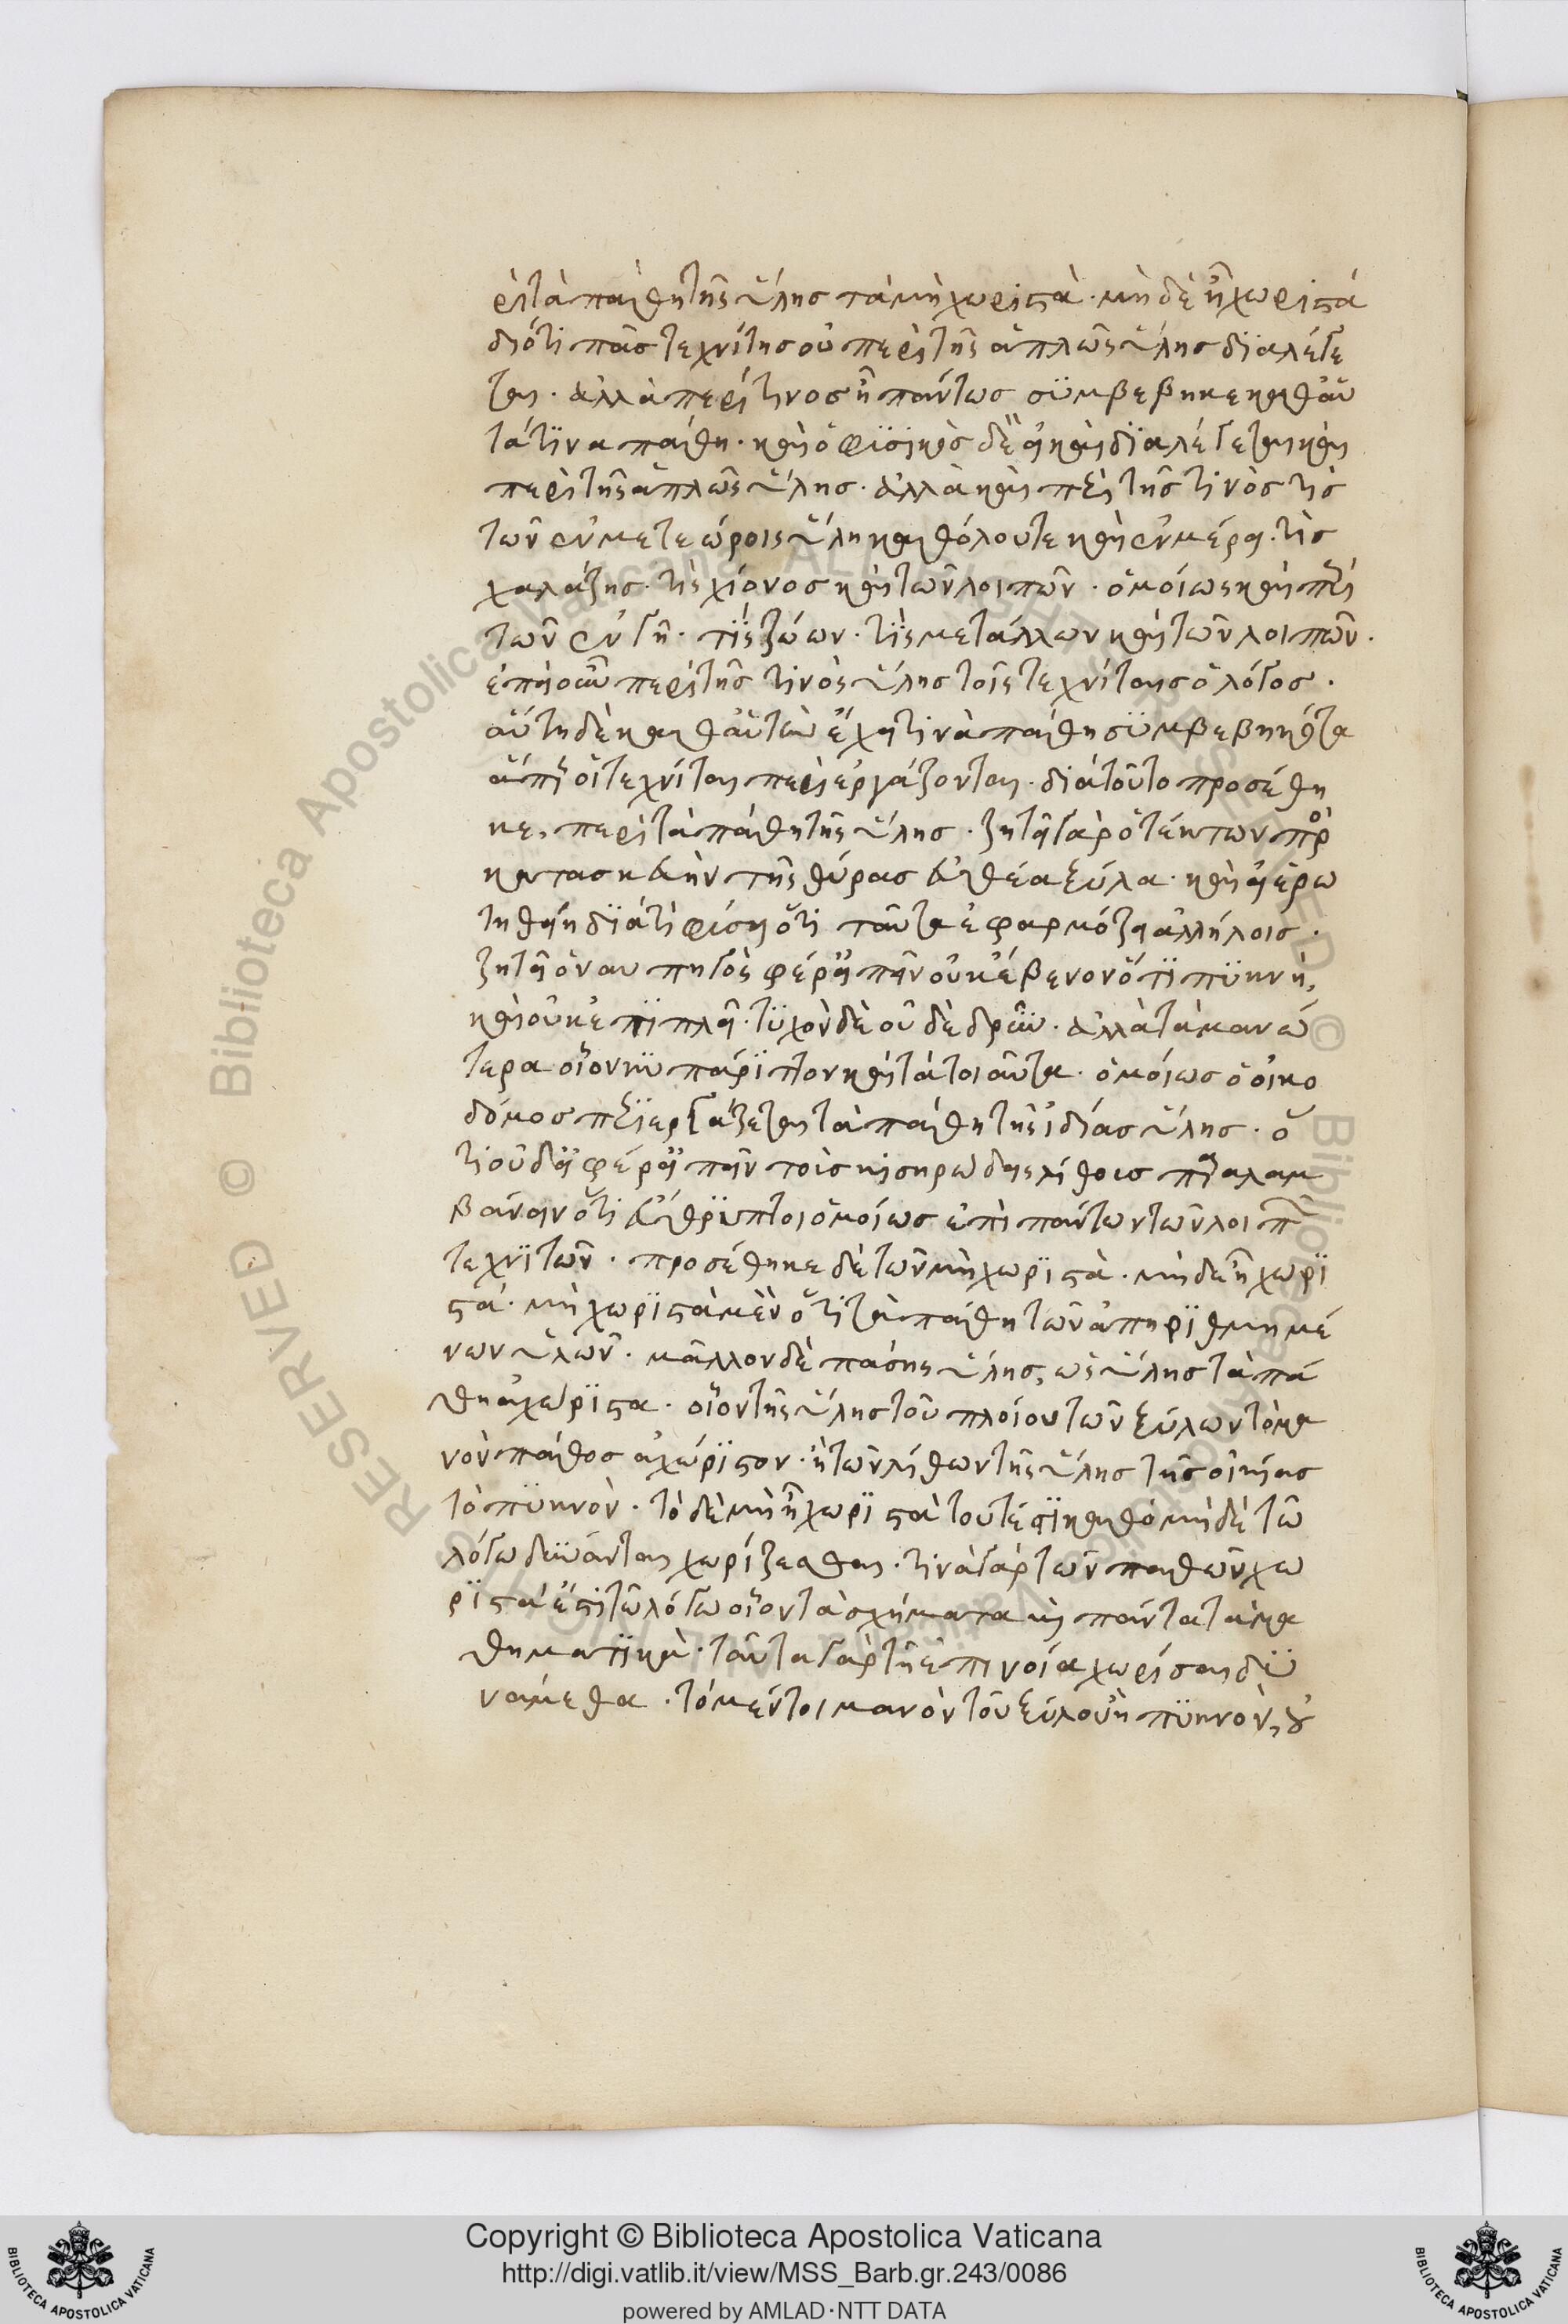 ρὶ τὰ πάθη τῆς ὕλης τὰ μὴ χωριστὰ· μὴ δὲ ᾗ χωριστά
διότι πᾶς τεχνίτης οὐ περὶ τῆς ἁπλῶς ὕλης διαλέγε
ται· ἀλλὰ περί τινος ᾗ πάντως συμβέβηκε καθ' αὑ
τά τινα πάθη· καὶ ὁ φυσικὸς δὲ εἰ καὶ διαλέγεται καὶ
περὶ τῆς ἁπλῶς ὕλης· ἀλλὰ καὶ περὶ τῆς τινὸς τῆς
τῶν ἐν μετεώροις ὕλη καθόλου τε καὶ ἐν μέρει· τῆς
χαλάζης· τῆς χίονος καὶ τῶν λοιπῶν· ὁμοίως καὶ περὶ
τῶν ἐν γῇ· τῆς ζώων· τῆς μετάλλων καὶ τῶν λοιπῶν·
ἐπεὶ οὖν περὶ τῆς τινὸς ὕλης τοῖς τεχνίταις ὁ λόγος·
αὕτη δὲ καθ' αὑτὴν ἔχει τινὰ πάθη συμβεβηκότα
ἅπερ οἱ τεχνίται περιεργάζονται· διὰ τοῦτο προσέθη
κε, περὶ τὰ πάθη τῆς ὕλης· ζητεῖ γὰρ ὁ τέκτων πρὸ
κατασκευὴν τῆς θύρας εὐθέα ξύλα· καὶ εἰ ἐρω
τηθείη διατί φύσει ὅτι ταῦτα ἐφαρμόζει ἀλλήλοις·
ζητεῖ ὁ ναυπηγὸς φέρειπεῖν οὐκ ἔβενον ὅτι πυκνὴ,
καὶ οὐκ ἐπιπλεῖ· τυχὸν δὲ οὐδὲ δρῦν· ἀλλὰ τὰ μανώ
τερα οἷον κυπάριττον καὶ τὰ τοιαῦτα· ὁμοίως ὁ οἰκο
δόμος περιεργάζεται τὰ πάθη τῆς ἰδίας ὕλης· ὅ
τι οὐ δεῖ φέρειπεῖν τοῖς κισηρώδεσι λίθοις παραλαμ
βάνειν ὅτι εὔθρυπτοι ὁμοίως ἐπὶ πάντων τῶν λοιπῶν
τεχνιτῶν· προσέθηκε δὲ τῶν μὴ χωριστὰ· μὴ δ' ᾗ χωρι
στά· μὴ χωριστὰ μὲν ὅτι τὰ πάθη τῶν ἀπηριθμημέ
νων ὑλῶν· μᾶλλον δὲ πάσης ὕλης, ὡς ὕλης τὰ πά
θη ἀχώριστα· οἷον τῆς ὕλης τοῦ πλοίου τῶν ξύλων τὸ μα
νὸν πάθος ἀχώριστον· ἢ τῶν λίθων τῆς ὕλης τῆς οἰκίας
τὸ πυκνὸν· τὸ δὲ μὴ ᾗ χωριστὰ τουτέστι καθὸ μὴ δὲ τῷ
λόγῳ δύνανται χωρίζεσθαι· τινὰ γὰρ τῶν παθῶν χω
ριστά ἐστι τῷ λόγῳ οἷον τὰ σχήματα καὶ πάντα τὰ μα
θηματικὰ· ταῦτα γὰρ τῇ ἐπινοίᾳ χωρίσαι δυ
νάμεθα· τὸ μέντοι μανὸν τοῦ ξύλου ἢ πυκνὸν, οὐ
Copyright © Biblioteca Apostolica Vaticana
http://digi.vatlib.it/view/MSS_Barb.gr.243/0086
powered by AMLAD·NTT DATA